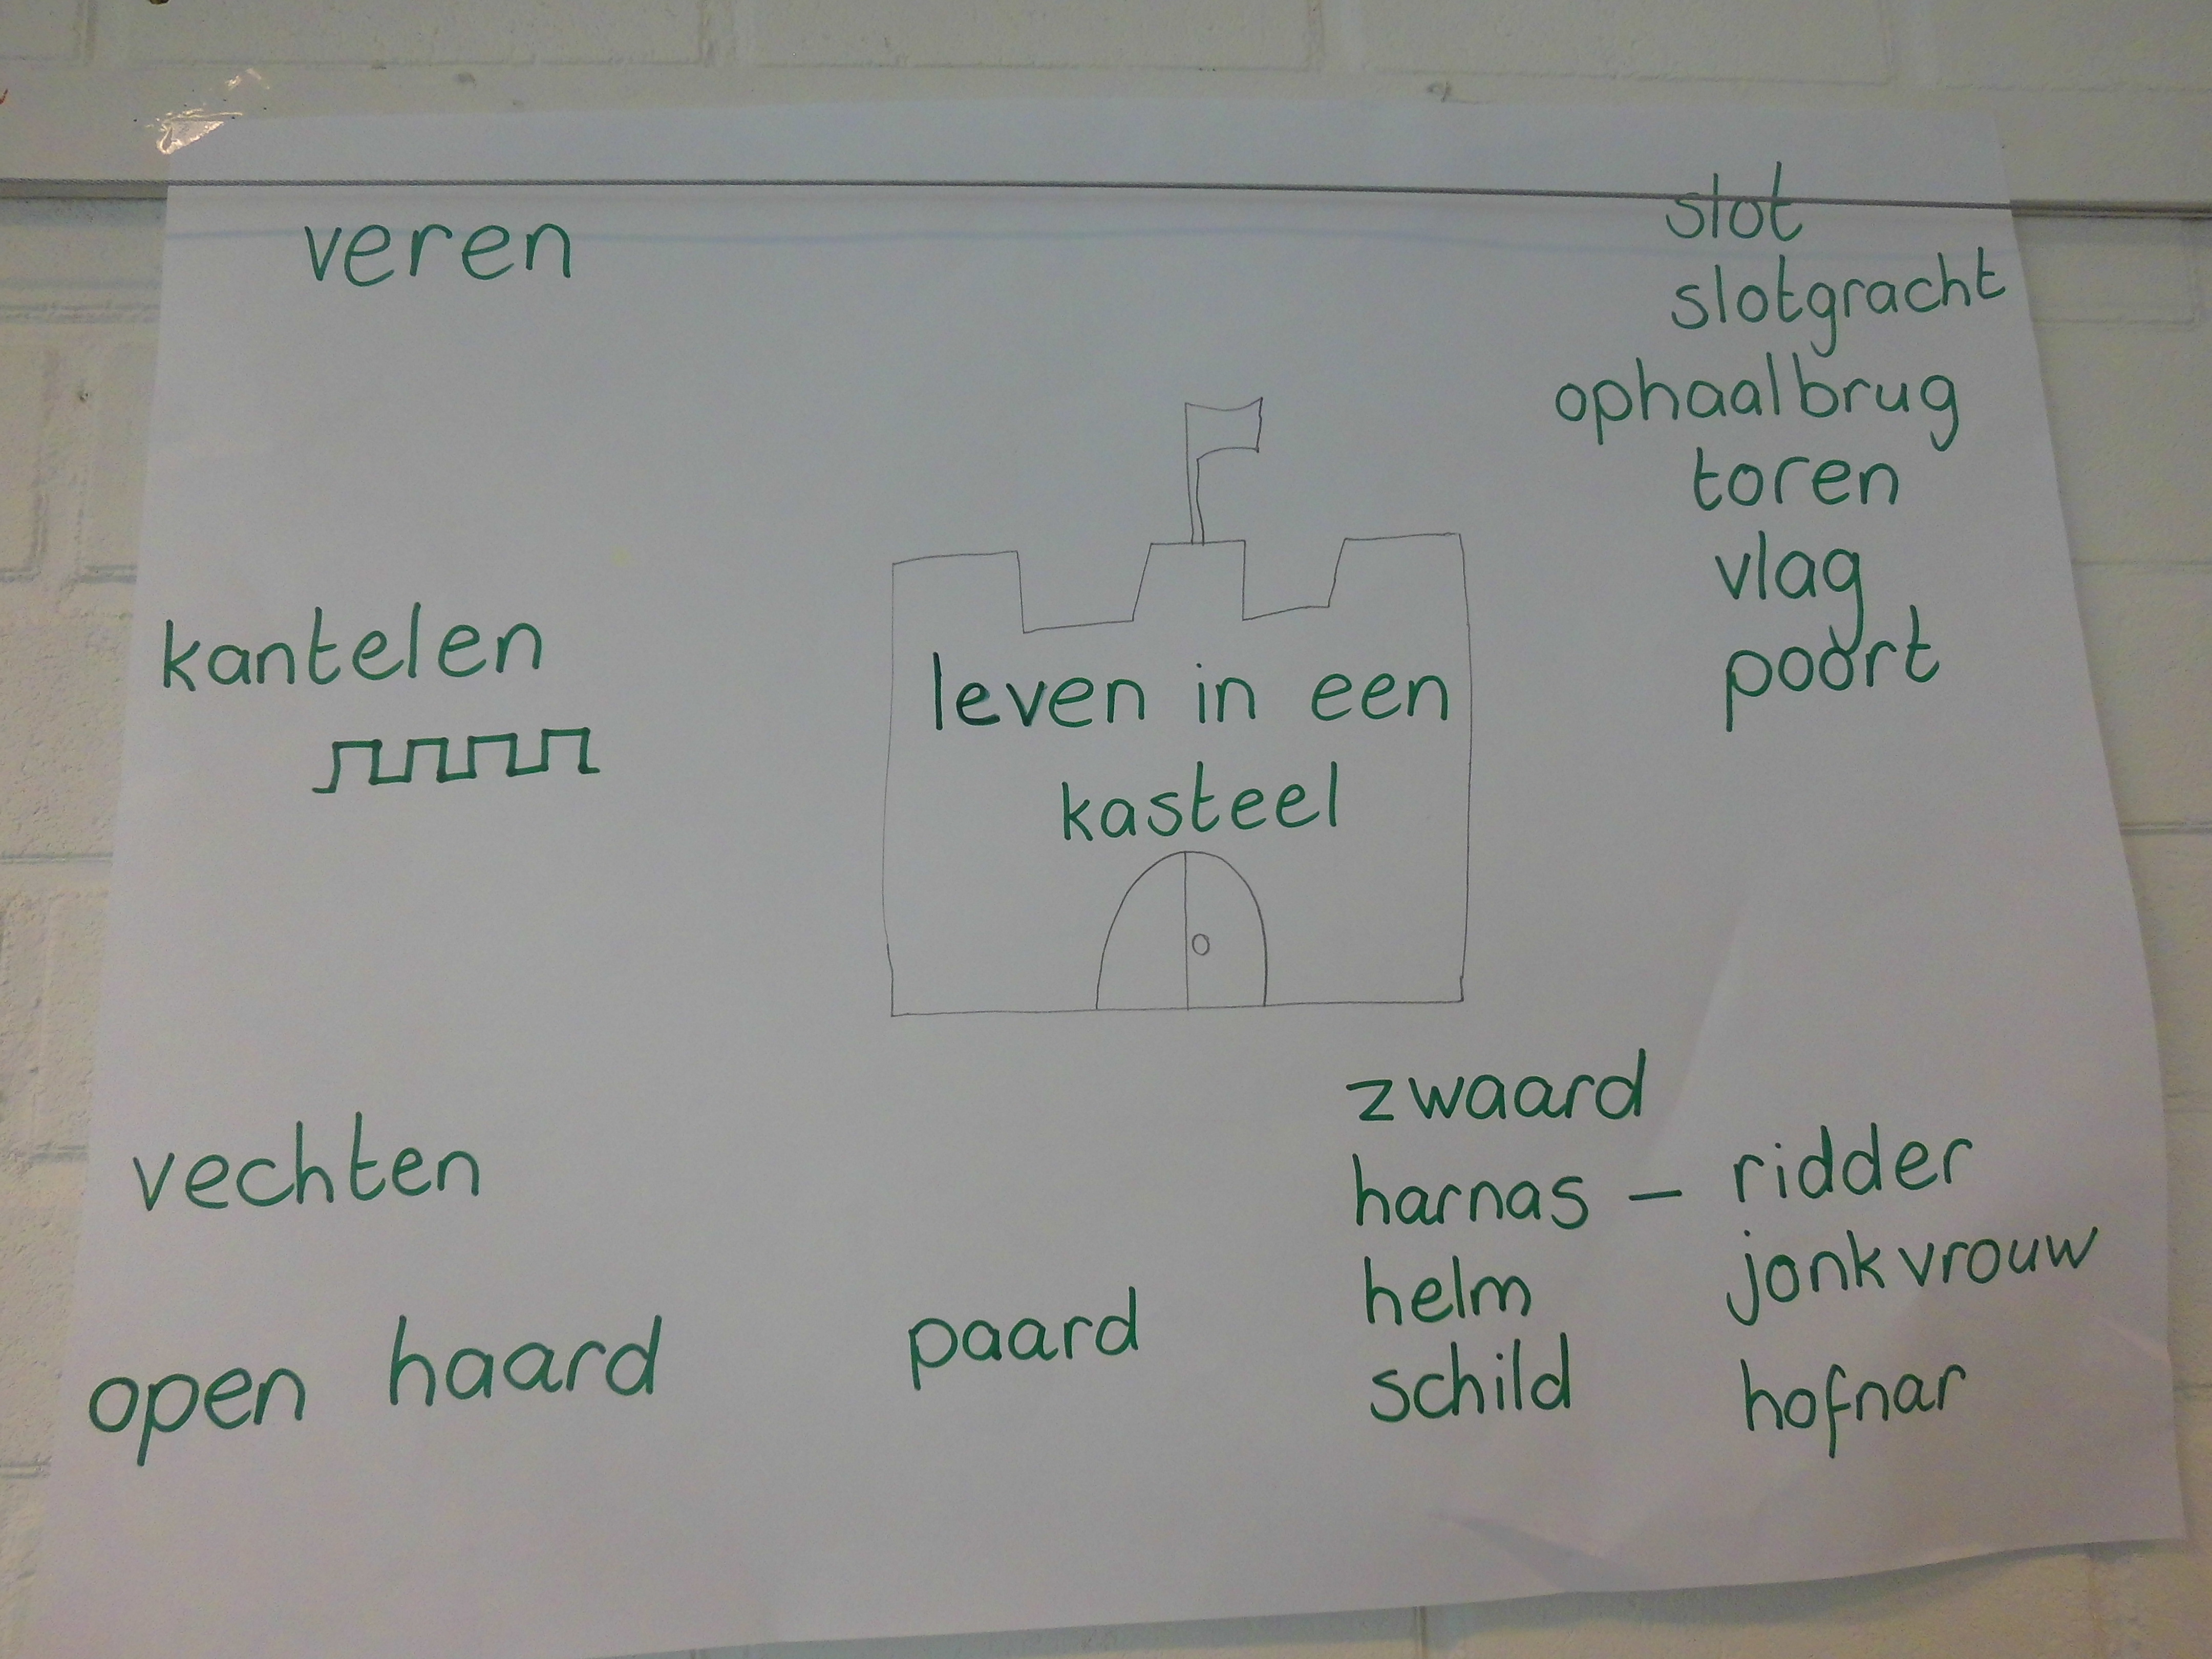 veren
slot
slotgracht
ophaalbrug
toren
vlag
poort
kantelen
leven in een
kasteel
vechten
open haard
paard
zwaard
harnas – ridder
helm
schild
jonkvrouw
hofnar